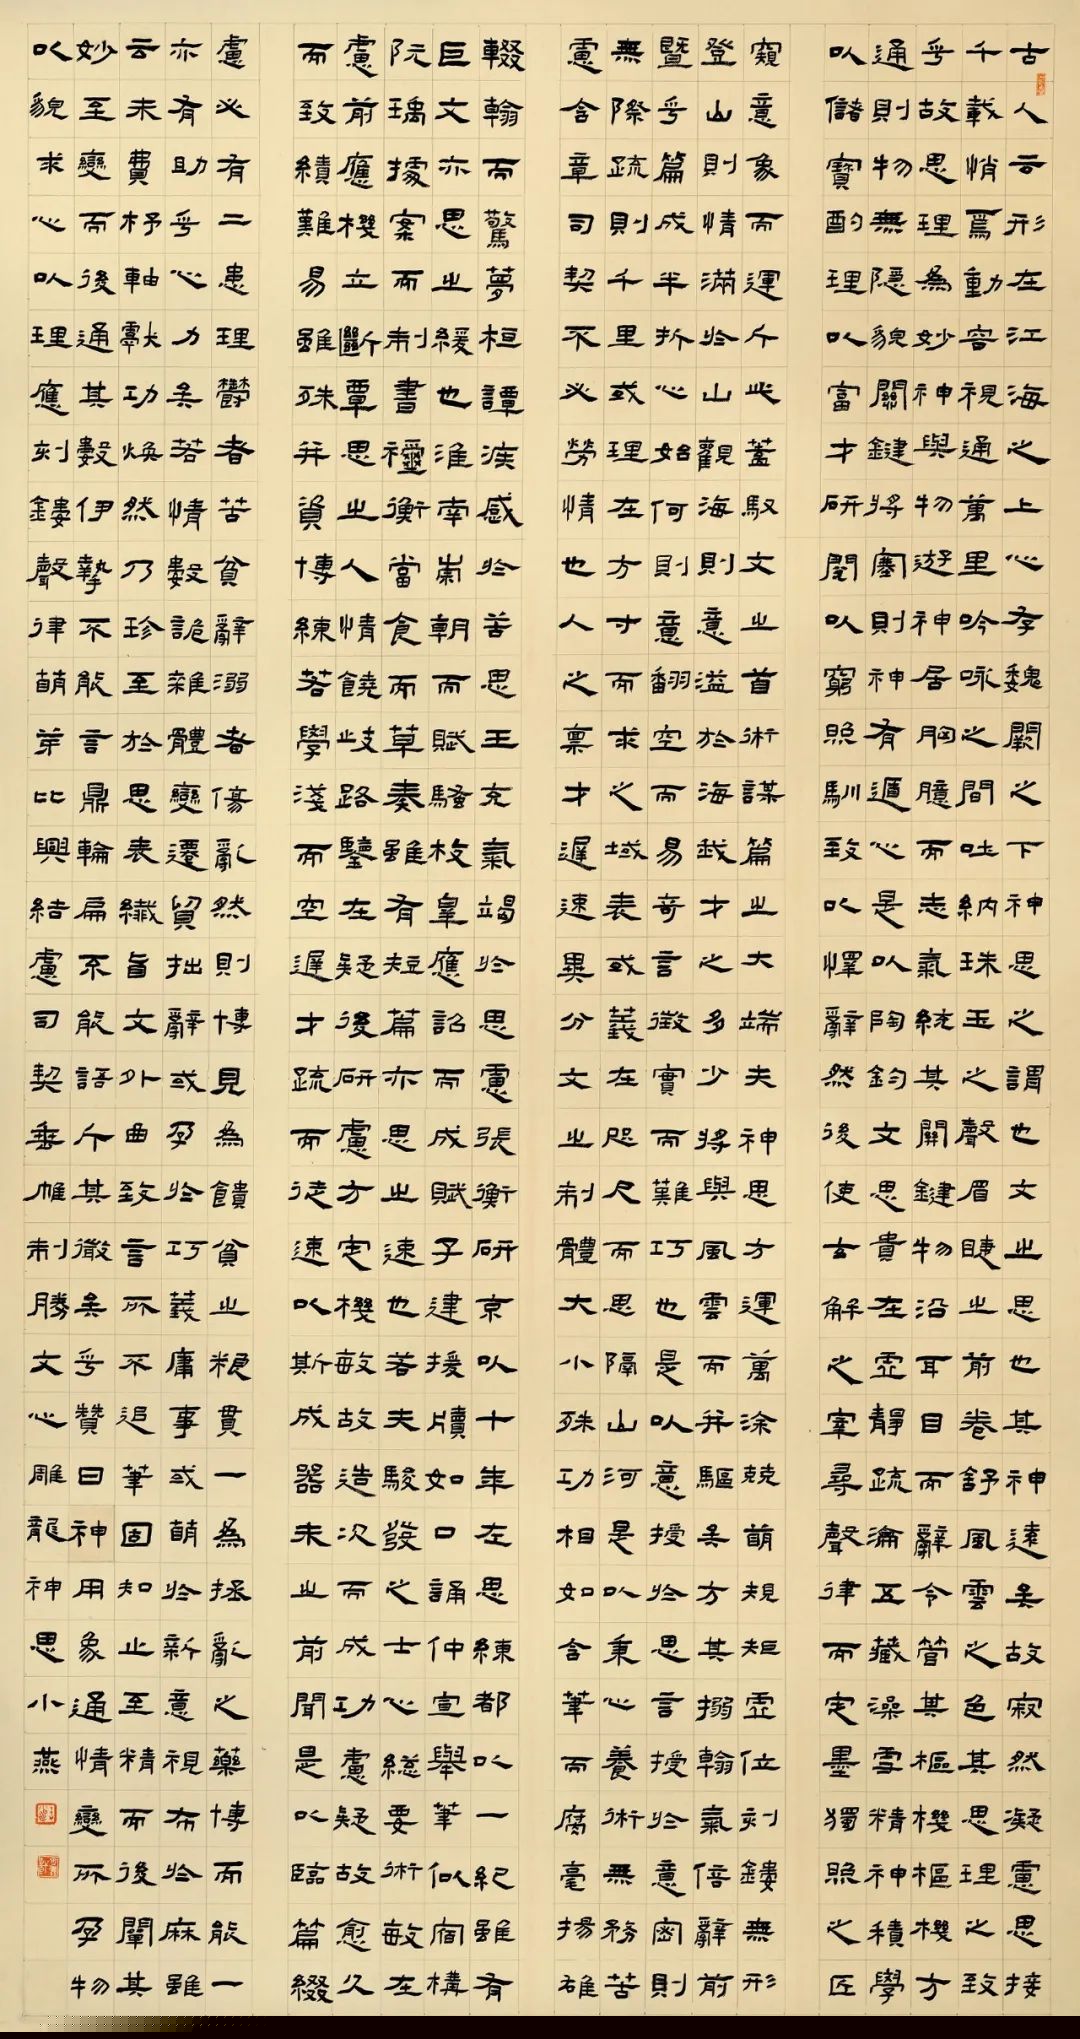 古人云形在江海之上心存魏闕之下神思之謂也文之思也其神遠矣故寂然凝慮思接
千載悄焉動容視通萬里吟咏之間吐納珠玉之聲眉睫之前卷舒風雲之色其思理之致
乎故思理為妙神與物遊神居胸臆而志氣統其關鍵物沿耳目而辭令管其樞機樞機方
通則物無隱貌關鍵將塞則神有遁心是以陶鈞文思貴在虛靜疏瀹五藏澡雪精神積學
以儲寶酌理以富才研閱以窮照馴致以懌辭然後使玄解之宰尋聲律而定墨獨照之匠
窺意象而運斤此蓋馭文之首術謀篇之大端夫神思方運萬涂競萌規矩虛位刻鏤無形
登山則情滿於山觀海則意溢於海我才之多少將與風雲而并驅矣方其搦翰氣倍辭前
暨乎篇成半折心始何則意翻空而易奇言徵實而難巧也是以意授於思言授於意密則
無際疏則千里或理在方寸而求之域表或義在咫尺而思隔山河是以秉心養術無務苦
慮含章司契不必勞情也人之稟才遲速異分文之制體大小殊功相如含筆而腐毫揚雄
輟翰而驚夢桓譚疾感於苦思王充氣竭於思慮張衡研京以十年左思練都以一紀雖有
巨文亦思之緩也淮南崇朝而賦騷枚皋應詔而成賦子建援牘如口誦仲宣舉筆似宿構
阮瑀據案而制書禰衡當食而草奏雖有短篇亦思之速也若夫駿發之士心總要術敏在
慮前應機立斷覃思之人情饒歧路鑒在疑後研慮方定機敏故造次而成功慮疑故愈久
而致績難易雖殊并資博練若學淺而空遲才疏而徒速以斯成器未之前聞是以臨篇綴
慮必有二患理鬱者苦貧辭溺者傷亂然則博見為饋貧之粮貫一為拯亂之藥博而能一
亦有助乎心力矣若情數詭雜體變遷貿拙辭或孕於巧義庸事或萌於新意視布於麻雖
云未費杼軸獻功煥然乃珍至於思表纖旨文外曲致言所不追筆固知止至精而後闡其
妙至變而後通其數伊摯不能言鼎輪扁不能語斤其微矣乎贊曰神用象通情變所孕物
以貌求心以理應刻鏤聲律萌芽比興結慮司契垂帷制勝文心雕龍神思小燕